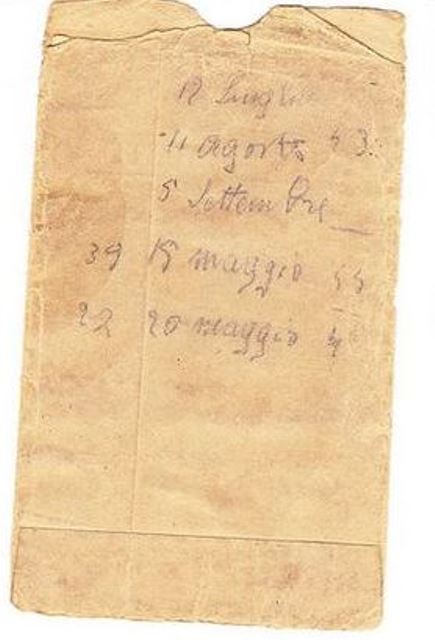 12 Luglio
11 agosto 43
5 Settembre
39 15 maggio 44
22 20 maggio 4